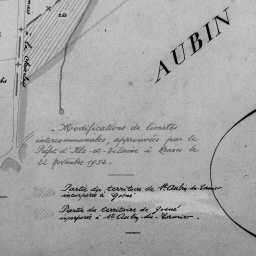 AUBIN
Modifications de limites
intercommunales, approuvées par le
Préfet d'Ille-et-Vilaine à Rennes le
22 Novembre 1952.
Partie du territoire de St Aubin du Cormier
incorporée à Gosné
Partie du territoire de Gosné
incorporée à St Aubin-du-Cormier.